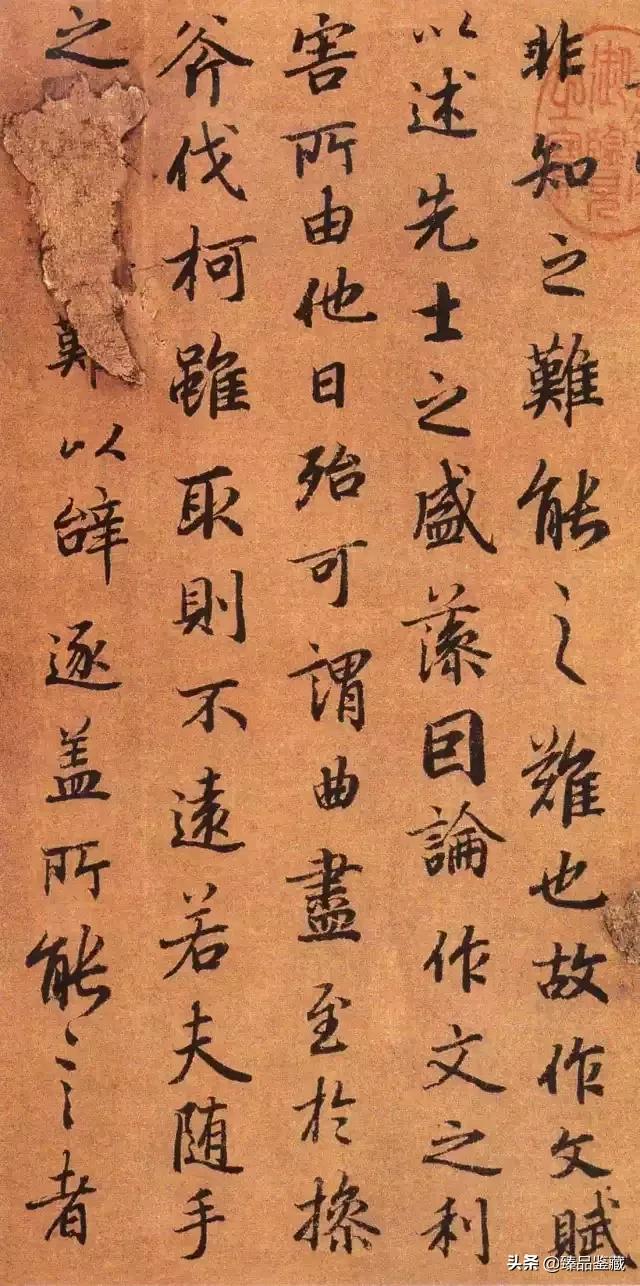 非知之難能之難也故作文賦
以述先士之盛藻因論作文之利
害所由他日殆可謂曲盡至於操
斧伐柯雖取則不遠若夫随手
之 以辭逐盖所能言者
头条 @臻品鉴藏